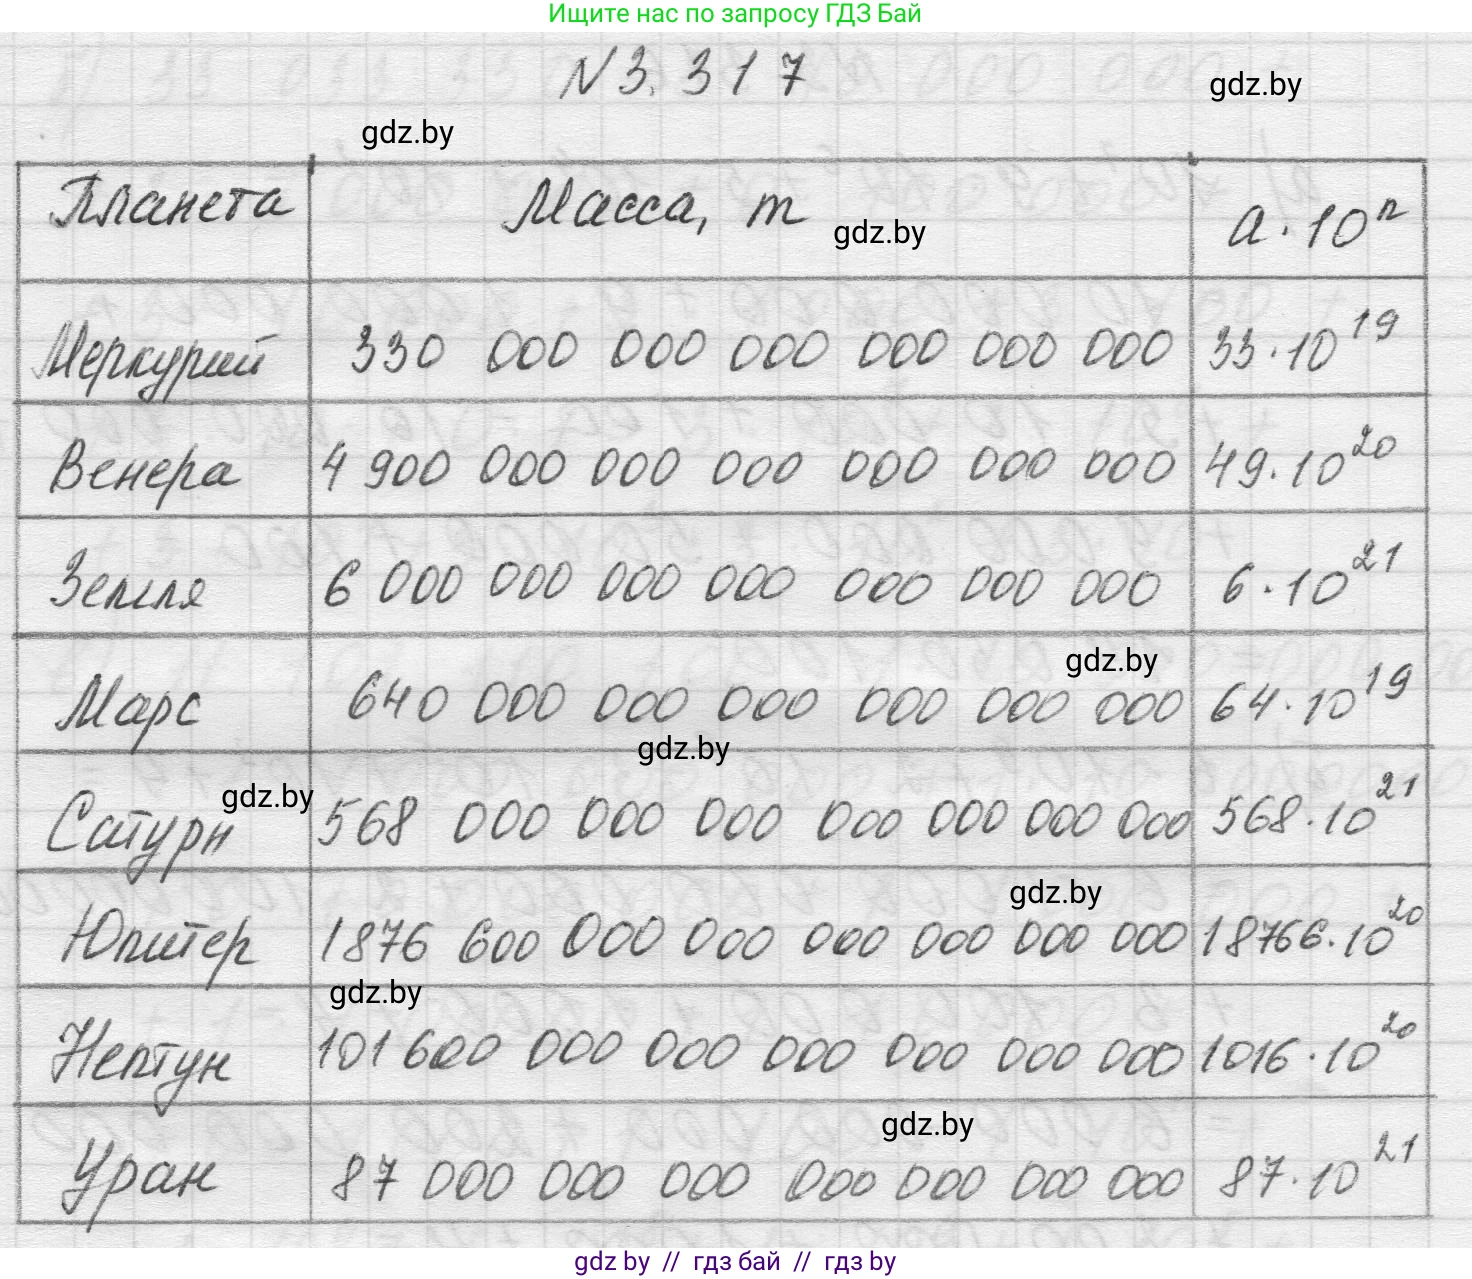 Ищите нас по запросу ГДЗ Бай
N3.317
gdz.by
gdz.by
Планета Масса, т a·10ⁿ
gdz.by
Меркурий 330 000 000 000 000 000 000 33·10¹⁹
Венера 4 900 000 000 000 000 000 000 49·10²⁰
Земля 6 000 000 000 000 000 000 000 6·10²¹
gdz.by
Марс 640 000 000 000 000 000 000 64·10¹⁹
gdz.by
gdz.by
Сатурн 568 000 000 000 000 000 000 000 568·10²¹
gdz.by
Юпитер 1876 600 000 000 000 000 000 000 18766·10²⁰
gdz.by
Нептун 101 600 000 000 000 000 000 000 1016·10²⁰
gdz.by
Уран 87 000 000 000 000 000 000 000 87·10²¹
gdz by // гдз бай // гдз by